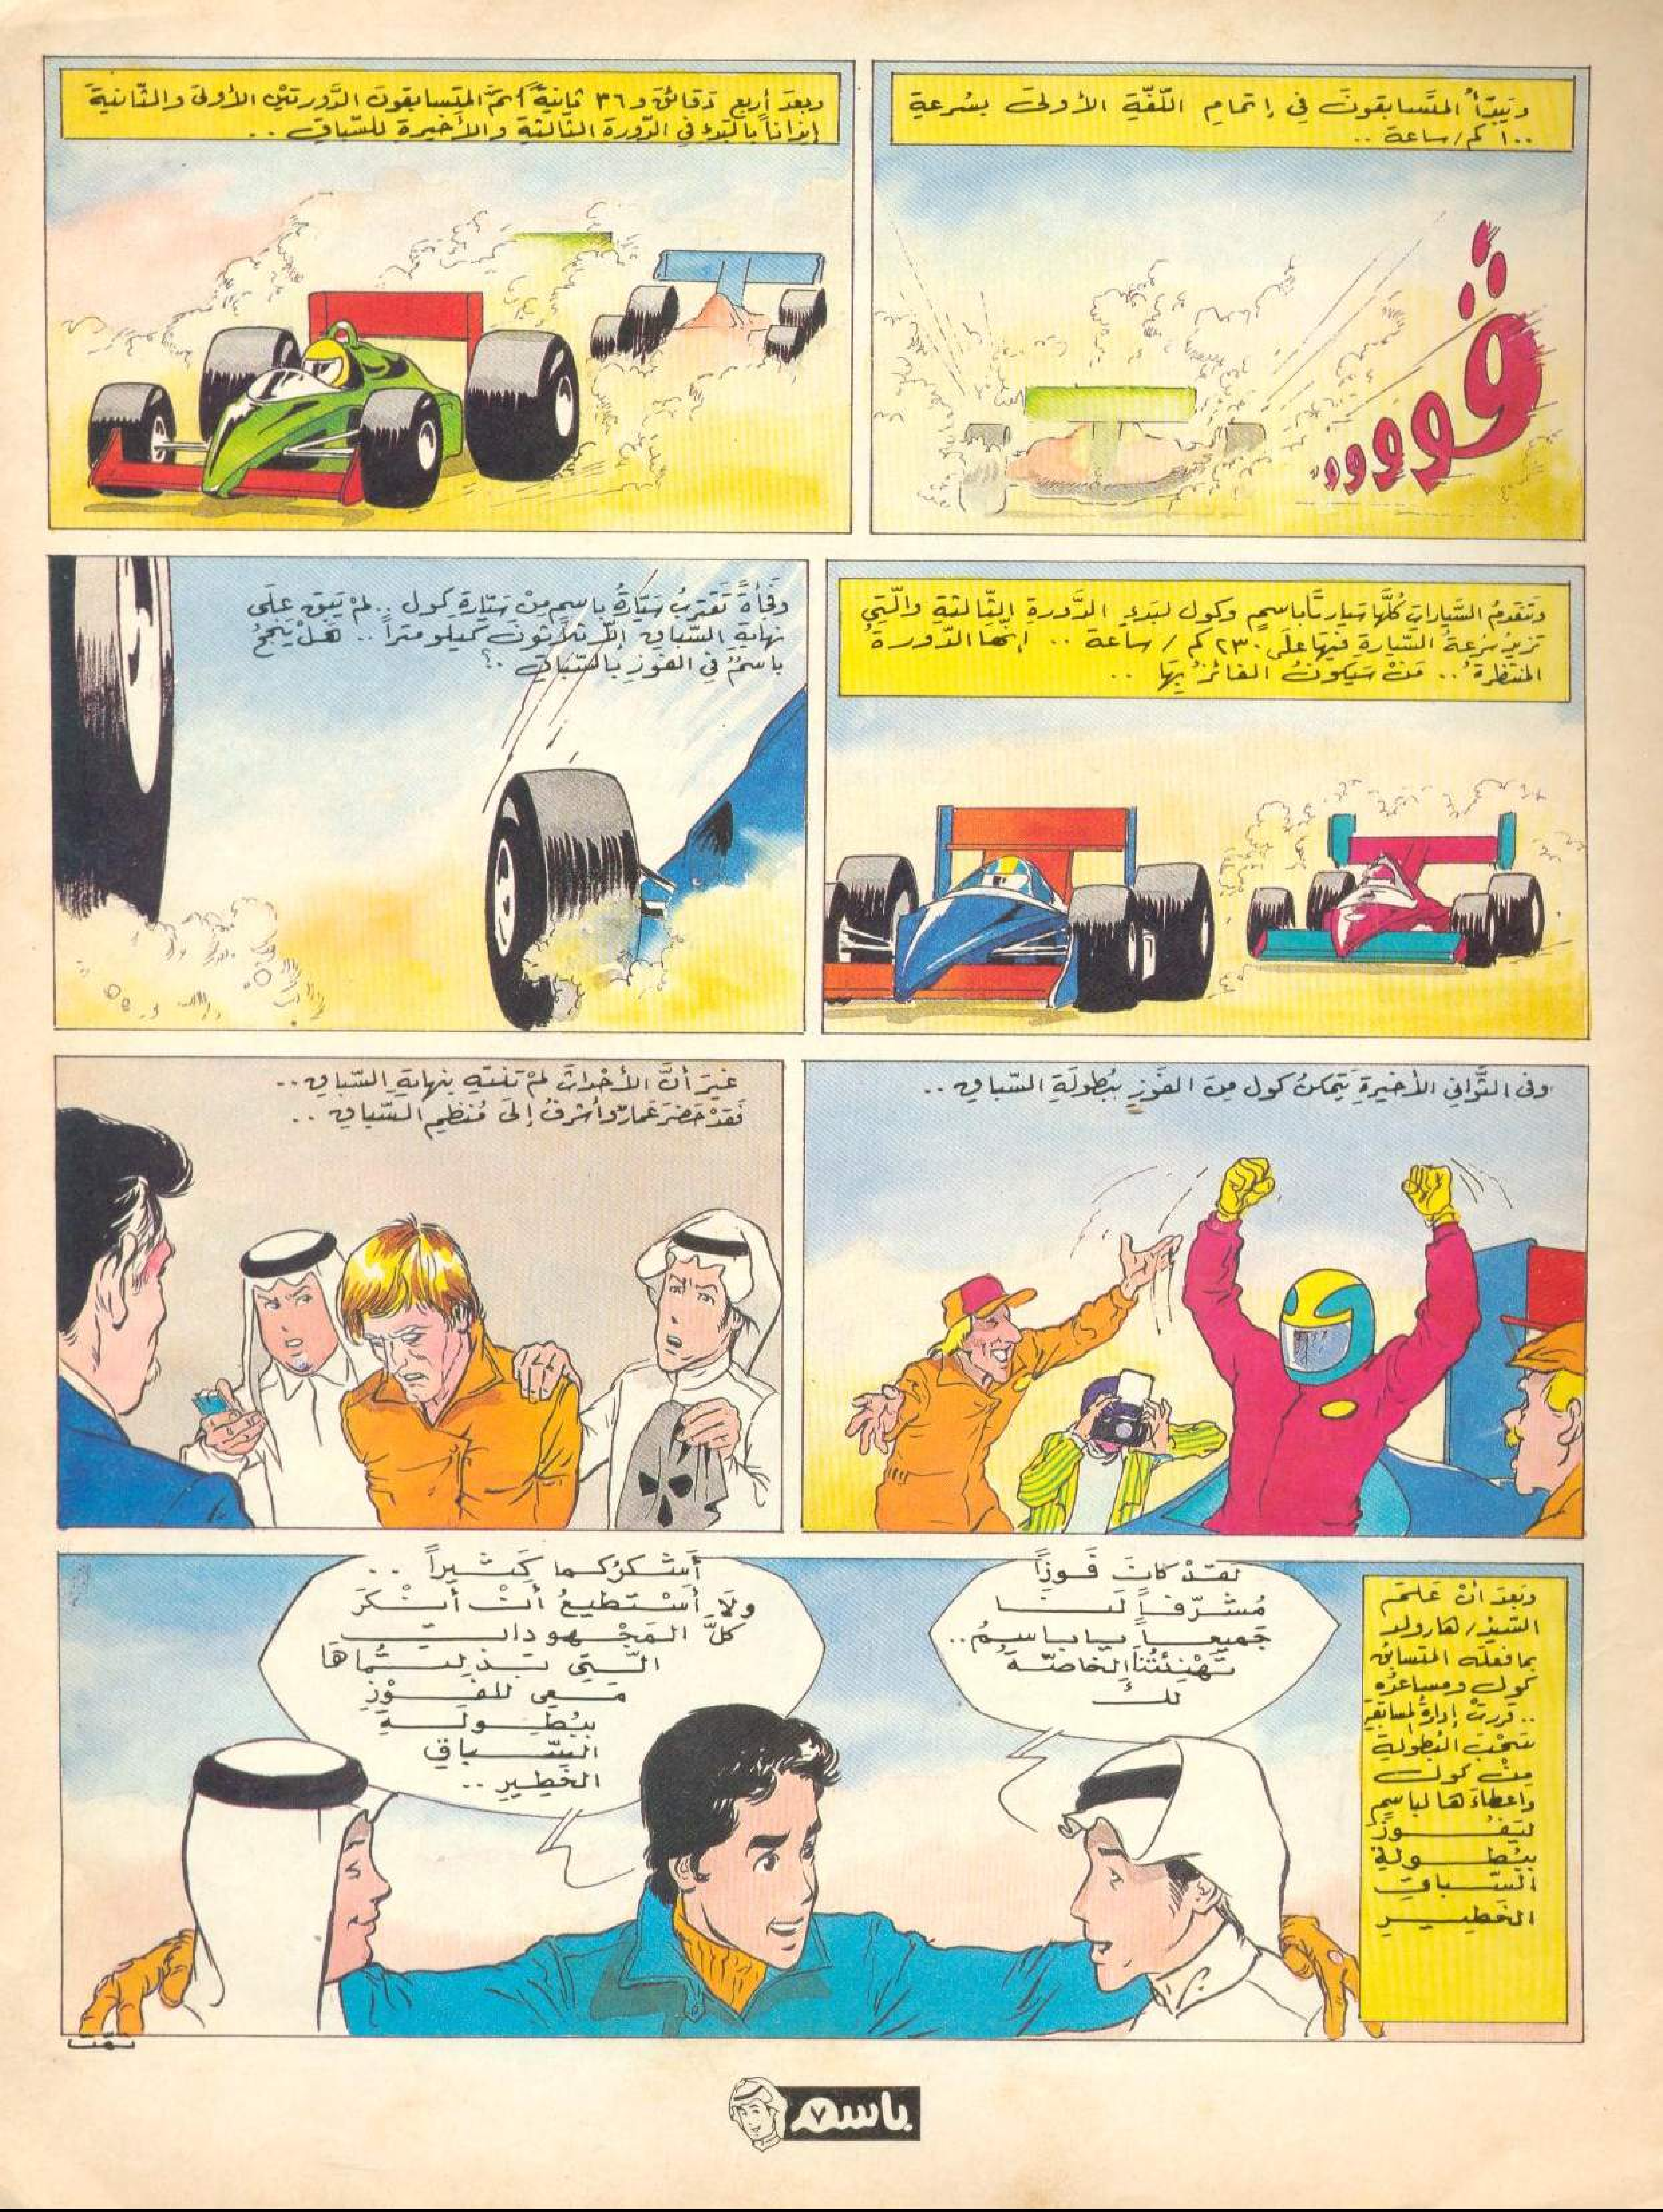 وَيَبْدَأُ المتَسابقونَ في إتمامِ اللّفّةِ الأولىَ بسُرعةِ
١٠٠ كم/ساعة ..
وبعدَ أربعِ دَقائقَ و٣٦ ثانيةً أتمَّ المتَسابقونَ الدَّورتيْنِ الأولىَ والثّانيةَ
إيذاناً بالبَدءِ في الدّورة الثّالثةِ والأخيرةِ للسّباقِ ..
ڤوووو
وتتقدمُ السَّياراتِ كُلَّها سَيارتَا باسمٍ وكول لبَدءِ الدَّورةِ الثّالثةِ والّتي
تزيدُ سُرعةُ السَّيارةِ فيهَا علَى ٢٣٠ كم / ساعة .. إنّها الدّورةُ
المنتظرةُ .. مَنْ سَيكونُ الفائزُ بِهَا ..
وفَجأةً تَقتربُ سَيّارةُ باسمٍ منْ سَيّارةِ كول .. لمْ يَتبق علَى
نهايةِ السّباقِ إلاّ ثلاثونَ كيلومتراً .. هَلْ يَنجحُ
باسمٌ في الفوزِ بالسّباقِ .؟
وفى الثَّواني الأخيرةِ يَتمكنُ كول منَ الفَوزِ ببُطولَةِ السّباقِ ..
غيرَ أنَّ الأحْداثَ لمْ تَنتهِ بنهايةِ السّباقِ ..
فَقدْ حَضرَ عَمارٌ وأشرفُ إلىَ مُنظمِ السّباقِ ..
وبَعدَ أنْ عَلمَ
السّيدُ/ هارولد
بمَا فعلَه المتَسابقُ
كول ومساعدُه
.. قررتْ إدارةُ المسابقةِ
سَحْبَ البُطولةِ
مِنْ كول
وإعطاءَهَا لباسمٍ
ليَفُوزَ
ببُطولةِ
السّباقِ
الخَطيرِ
لَقَدْ كانَ فَوزاً
مُشرّفاً لَنا
جَميعاً يا باسمُ ..
تَهْنِئتُنا الخاصّةُ
لكَ
أَشكرُكما كَثيراً ..
ولاَ أَسْتطيعُ أنْ أنْكرَ
كلَّ المَجْهوداتِ
الّتي بَذلتُمَاهَا
مَعي للفَوْزِ
ببُطولَةِ
السّباقِ
الخَطيرِ ..
تمّت
باسم
٧